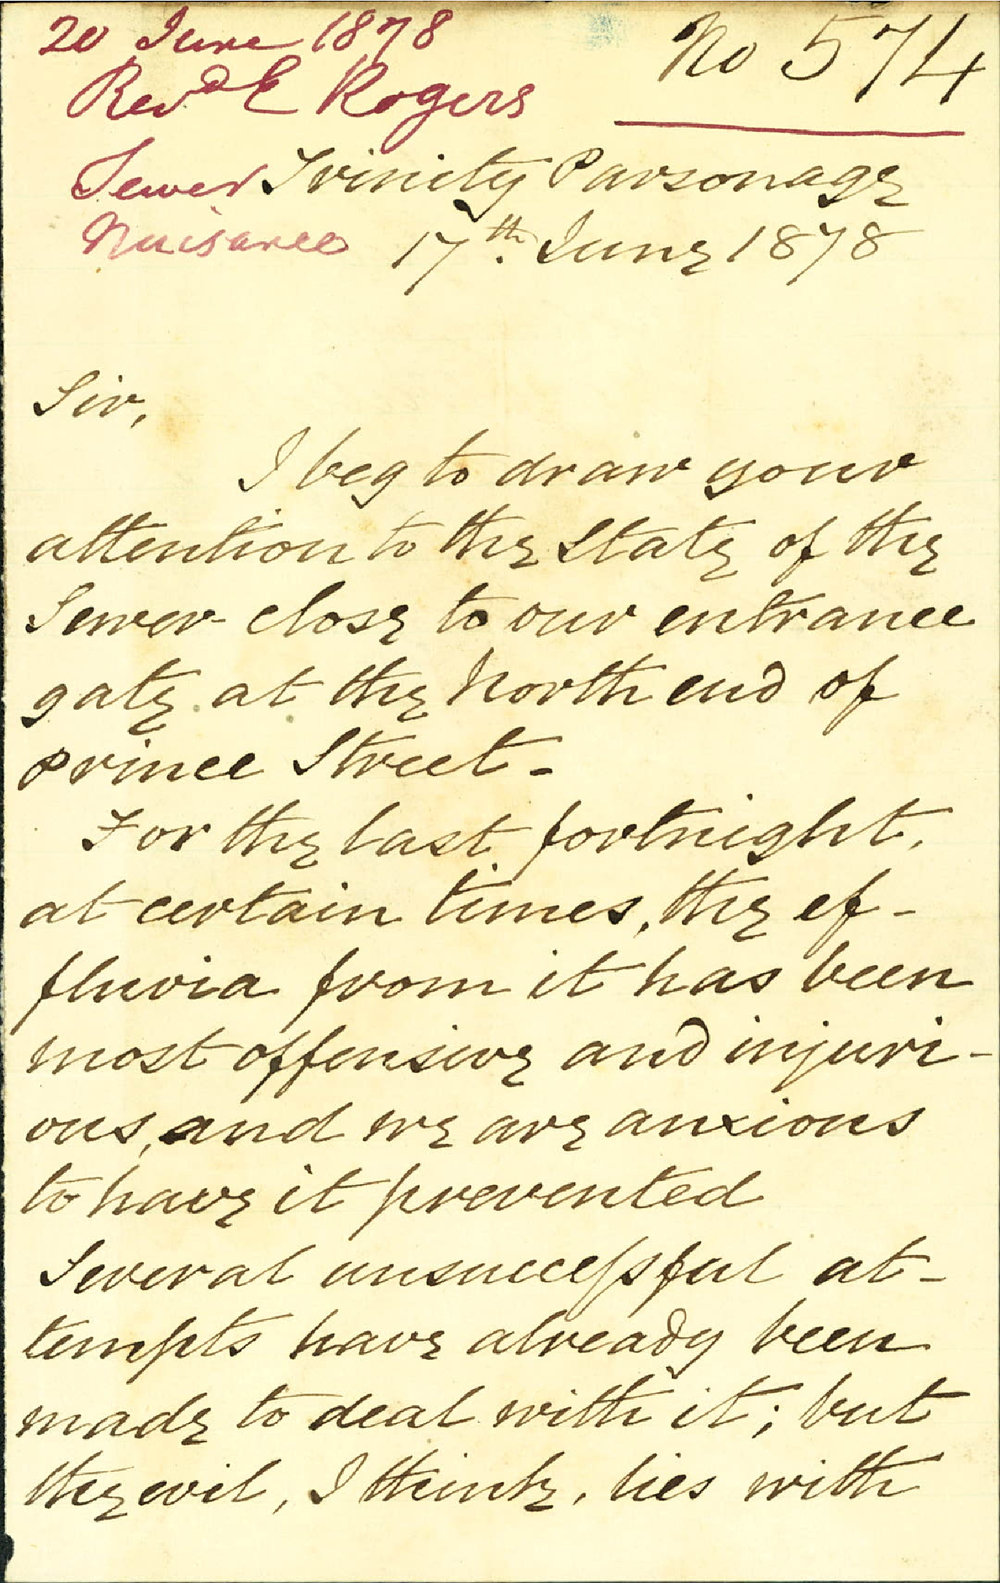 20 June 1878
No 574
Revd E Rogers
Sewer
Nuisance
Trinity Parsonage
17th. June 1878
Sir,
I beg to draw your
attention to the State of the
Sewer close to our entrance
gate at the North end of
Prince Street -
For the last fortnight,
at certain times, the ef-
fluvia from it has been
most offensive and injuri-
ous, and we are anxious
to have it prevented
Several unsuccessful at-
tempts have already been
made to deal with it; but
the evil, I think, lies with